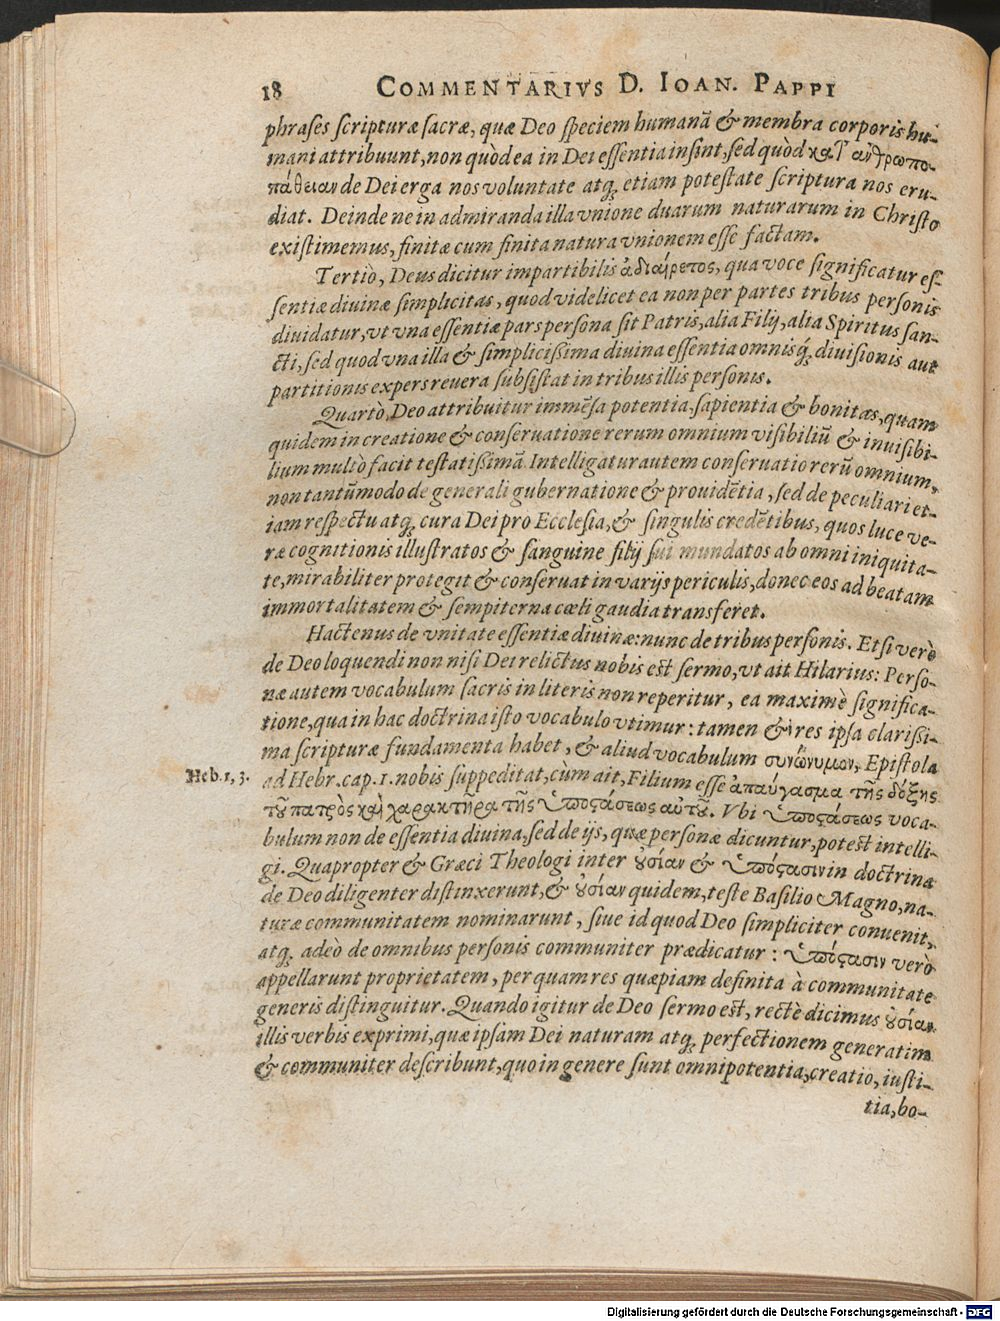 18 COMMENTARIVS D. IOAN. PAPPI
phrases scripturæ sacræ, quæ Deo speciem humanā & membra corporis hu-
mani attribuunt, non quòd ea in Dei essentia insint, sed quòd κατ' ἀνθρωπο-
πάθειαν de Dei erga nos voluntate atq́; etiam potestate scriptura nos eru-
diat. Deinde ne in admiranda illa vnione duarum naturarum in Christo
existimemus, finitæ cum finita natura vnionem esse factam.
Tertiò, Deus dicitur impartibilis ἀδιαίρετος, qua voce significatur es-
sentiæ diuinæ simplicitas, quod videlicet ea non per partes tribus personis
diuidatur, vt vna essentiæ pars persona sit Patris, alia Filij, alia Spiritus san-
cti, sed quod vna illa & simplicissima diuina essentia omnisq́; diuisionis aut
partitionis expers reuera subsistat in tribus illis personis.
Quartò, Deo attribuitur immēsa potentia, sapientia & bonitas, quam
quidem in creatione & conseruatione rerum omnium visibiliū & inuisibi-
lium multò facit testatissimā. Intelligatur autem conseruatio rerū omnium,
non tantūmodo de generali gubernatione & prouidētia, sed de peculiari et-
iam respectu atq́; cura Dei pro Ecclesia, & singulis credētibus, quos luce ve-
ræ cognitionis illustratos & sanguine filij sui mundatos ab omni iniquita-
te, mirabiliter protegit & conseruat in varijs periculis, donec eos ad beatam
immortalitatem & sempiterna cæli gaudia transferet.
Hactenus de vnitate essentiæ diuinæ: nunc de tribus personis. Etsi verò
de Deo loquendi non nisi Dei relictus nobis est sermo, vt ait Hilarius: Perso-
næ autem vocabulum sacris in literis non reperitur, ea maximè significa-
tione, qua in hac doctrina isto vocabulo vtimur: tamen & res ipsa clarissi-
ma scripturæ fundamenta habet, & aliud vocabulum συνώνυμον, Epistola
Heb. 1, 3. ad Hebr. cap. 1. nobis suppeditat, cùm ait, Filium esse ἀπαύγασμα τῆς δόξης
τοῦ πατρὸς καὶ χαρακτῆρα τῆς ὑποστάσεως αὐτοῦ. Vbi ὑποστάσεως voca-
bulum non de essentia diuina, sed de ijs, quæ personæ dicuntur, potest intelli-
gi. Quapropter & Græci Theologi inter οὐσίαν & ὑπόστασιν in doctrina
de Deo diligenter distinxerunt, & οὐσίαν quidem, teste Basilio Magno, na-
turæ communitatem nominarunt, siue id quod Deo simpliciter conuenit,
atq́; adeò de omnibus personis communiter prædicatur: ὑπόστασιν verò
appellarunt proprietatem, per quam res quæpiam definita à communitate
generis distinguitur. Quando igitur de Deo sermo est, rectè dicimus οὐσίαν
illis verbis exprimi, quæ ipsam Dei naturam atq́; perfectionem generatim
& communiter describunt, quo in genere sunt omnipotentia, creatio, iusti-
tia, bo-
Digitalisierung gefördert durch die Deutsche Forschungsgemeinschaft - DFG